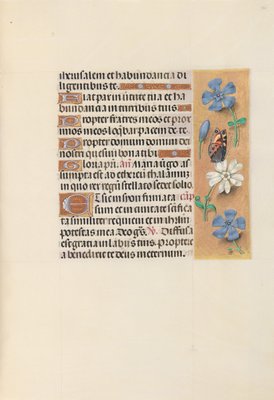 iherusalem et habundancia di
ligentibus te.
Fiat pax in virtute tua et ha
bundancia in turribus tuis.
Propter fratres meos et prox
imos meos loq̄bar pacem de te.
Propter domum domini dei
nostri quesiui bona tibi
Gloria pr̄i. an̄. Maria v̄go as
sumpta est ad ethereū thalamū
in quo rex regū stellato sedet solio.
Et sic in syon firmata cap̄.
sum et in ciuitate scīfica
ta similiter requieui et in ihrlm̄
potestas mea. Deo grās. V̄. Diffusa
est gratia in labiis tuis. Proptere
a benedixit te deus in eternum.